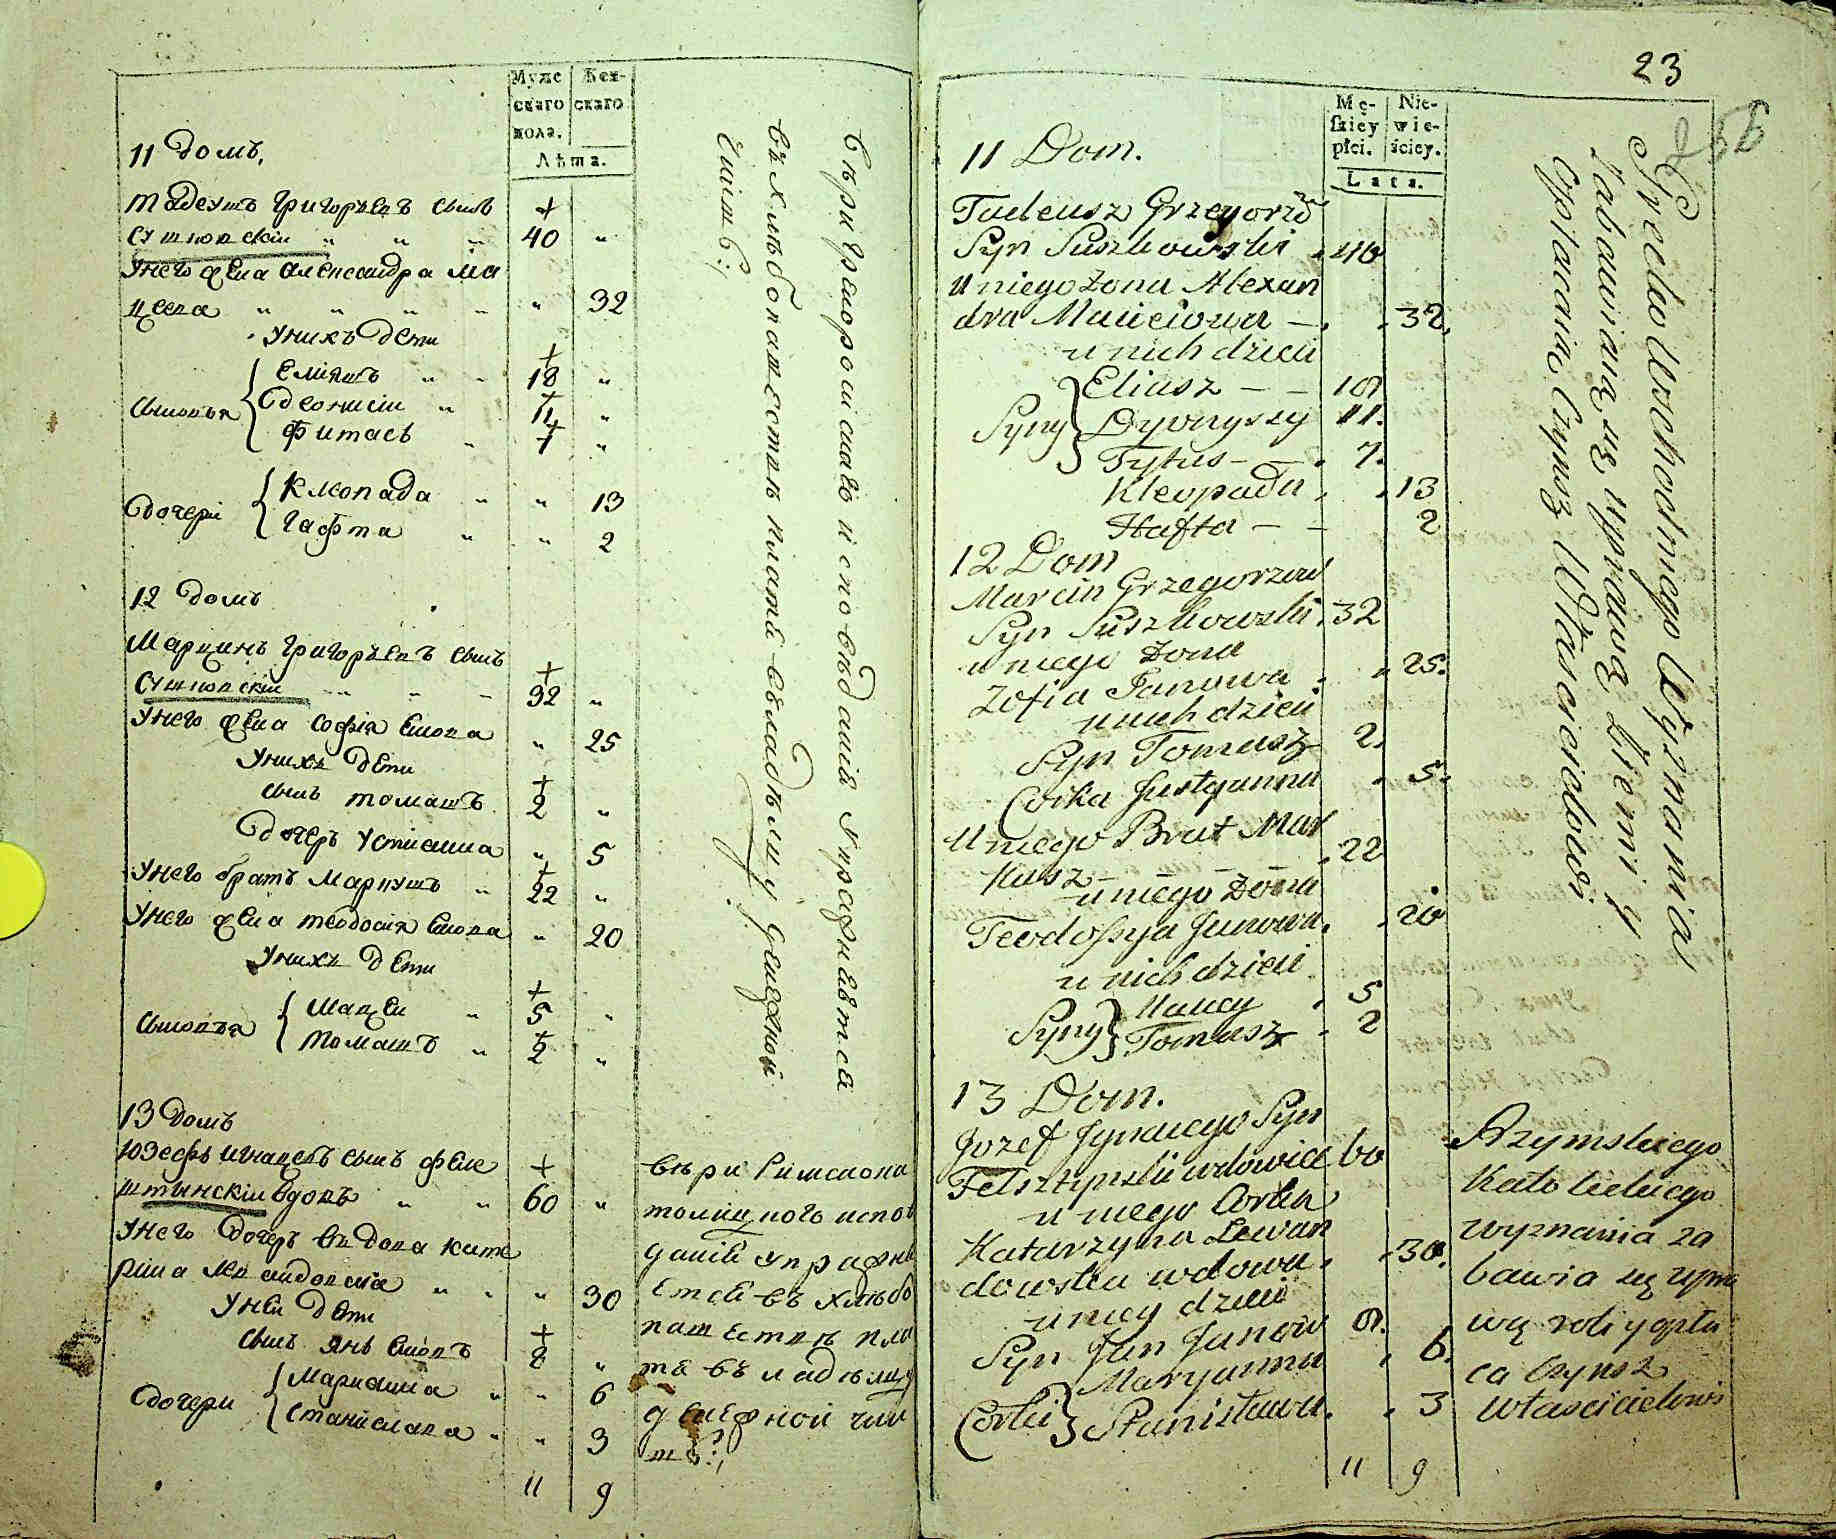 Муже
скаго
пола.
Жен-
скаго
Лѣта.
11 Домъ,
Тадеушъ Григорьевъ сынъ
Сушковскіи " " " 40 "
Унего жена Александра Ма
цеева " " " " " 32
Унихъ Дети
Сыновья { Еліяшъ " " 18 "
Деонисіи " 11 "
Фитасъ " 7 "
Дочери { Клеопада " " 13
Гафта " " 2
12 Домъ
Марцинъ Григорьевъ сынъ
Сушковскіи " " " 32 "
Унего жена Софія Енова " 25
Унихъ Дети
сынъ Томашъ 2 "
Дочеръ Устіанна " 5
Унего братъ Маркушъ " 22 "
Унего жена Теодосія Енова " 20
Унихъ Дети
Сыновья { Мацеи " 5 "
Томашъ " 2 "
13 Домъ
Юзефъ Игнацевъ сынъ Фель
штынскіи Вдовъ " " 60 "
Унего Дочеръ Вдова Кате
рина Левандовска " " " 30
Унеи Дети
сынъ Янъ Еновъ 8 "
Дочери { Маріанна " " 6
Станислава " " 3
11 9
Веры Грекоросискаго исповеданія упражняется
въ хлебопашестве плата въ владельцу денежной
чиншъ
веры Римскока
толицкого испов
данія упражня
ется въ хлебо
пашестве пла
та въ владельцу
денежной чин
шъ
23
Mę-
skiey
płci.
Nie-
wie-
ściey.
Lata.
11 Dom.
Tadeusz Grzegorzów
Syn Suszkowski . 40
u niego żona Alexan
dra Macieiowa — . . 32.
u nich dzieci
Syny } Eliasz — — 18
Dyonyszy 11.
Tytus — — . 7.
Kleopada . . 13
Hafta — — 2
12 Dom
Marcin Grzegorzow
Syn Suszkowski . 32
u niego żona
Zofia Janowa . . 25.
u nich dzieci
Syn Tomasz 2.
Corka Justyanna . 5.
U niego Brat Mar
kusz — — — . 22
u niego żona
Teodossya Janowa . . 20
u nich dzieci
Syny } Maciey . 5
Tomasz . 2
13 Dom.
Jozef Jgnacego Syn
Felsztynski wdowiec 60
u niego Corka
Katarzyna Lewan
dowska wdowa . . 30.
u niey dzieci
Syn Jan Janow 8.
Corki } Maryanna . 6.
Stanisława . . 3
11 9
Grecko Wschodniego Wyznania
zabawiaią się uprawą ziemi y
opłacaią Czynsz Włascicielowi
Rzymskiego
Katolickiego
wyznania za
bawia się upra
wą roli y opła
ca czynsz
właścicielowi